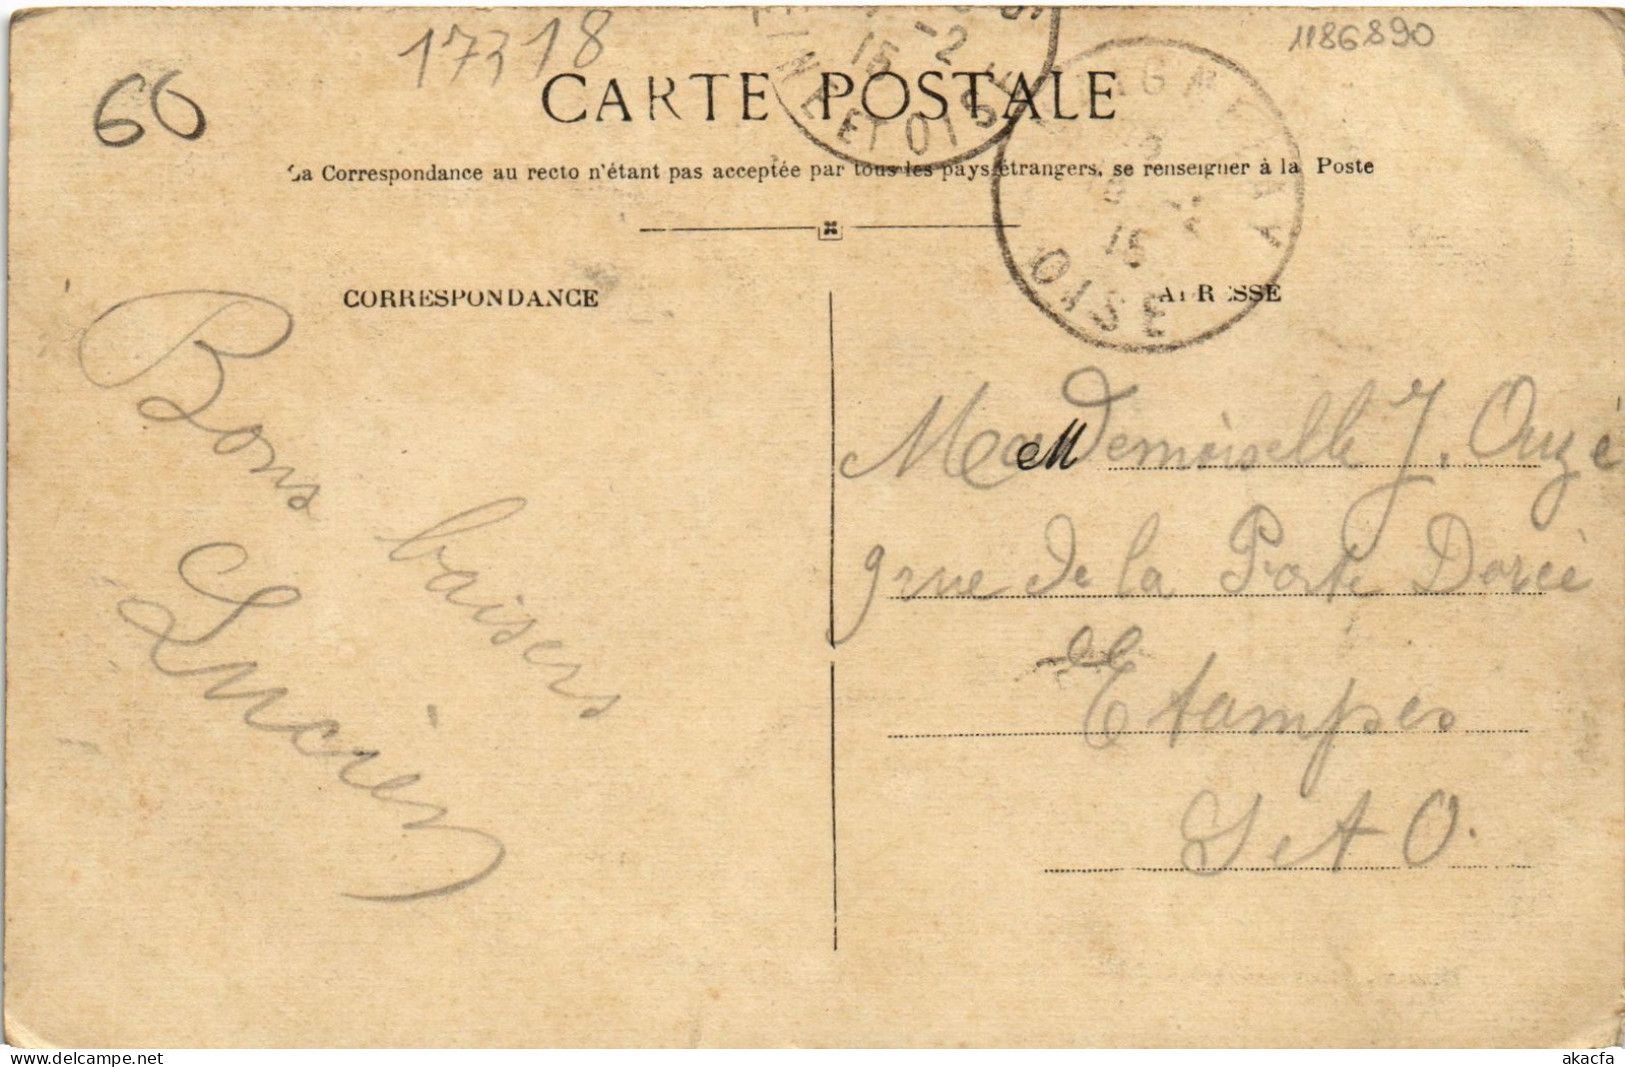 17318
1186890
60
CARTE POSTALE
15 -2
ET OISE
La Correspondance au recto n'étant pas acceptée par tous les pays étrangers, se renseigner à la Poste
15
OISE
CORRESPONDANCE
ADRESSE
Bons baisers
Lucien
Mademoiselle J. Ouzé
9 rue de la Porte Dorée
Etampes
S et O.
delcampe.net
akacfa